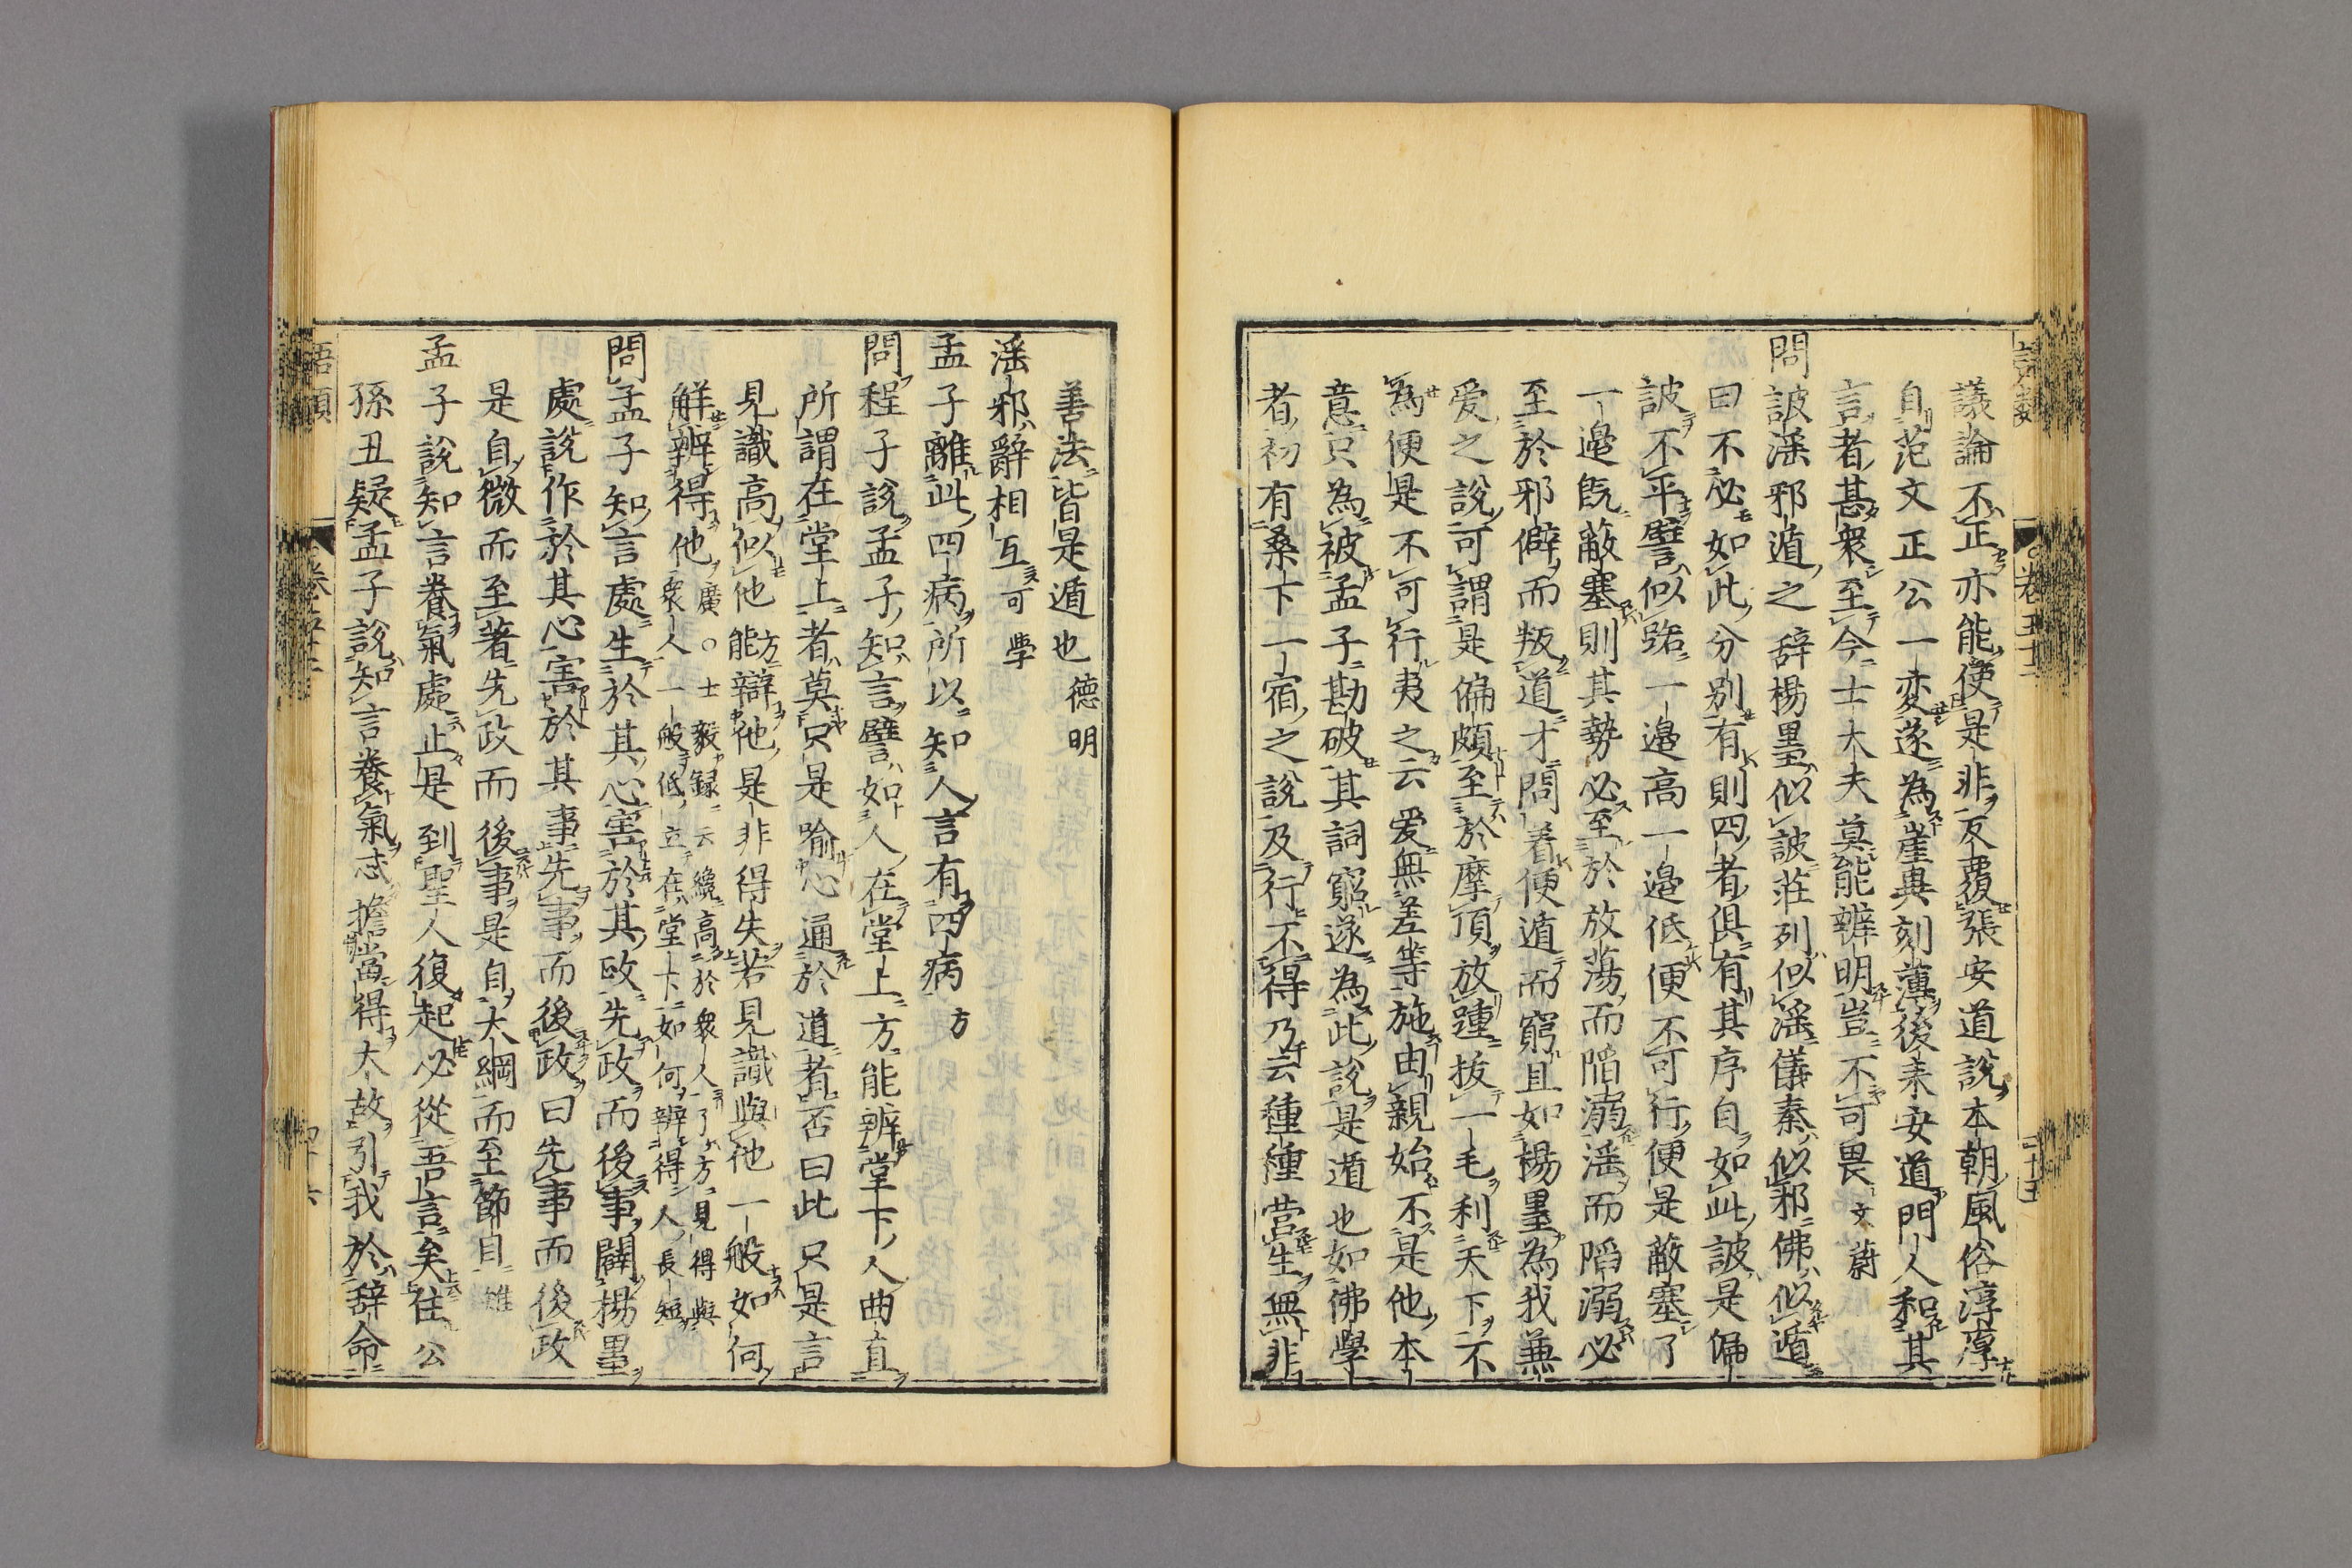 議論不正亦能使是非反覆張安道說本朝風俗淳厚
自范文正公一変遂為崖異刻薄後来安道門人和其
言者甚衆至今士大夫莫能辨明豈不可畏 文蔚
問詖淫邪遁之辞楊墨似詖莊列似淫儀秦似邪佛似遁
曰不必如此分别有則四者俱有其序自如此詖是偏
詖不平譬似踞一邉高一邉低便不可行便是蔽塞了
一邉既蔽塞則其勢必至於放蕩而陷溺淫而陷溺必
至於邪僻而叛道才問着便遁而窮且如楊墨為我兼
爱之說可謂是偏頗至於摩頂放踵拔一毛利天下不
為便是不可行夷之云爱無差等施由親始不是他本
意只為被孟子勘破其詞窮遂為此說是遁也如佛學
者初有桑下一宿之說及行不得乃云種種営生無非
善法皆是遁也 徳明
淫邪辭相互 可學
孟子離此四病所以知人言有四病 方
問程子說孟子知言譬如人在堂上方能辨堂下人曲直
所謂在堂上者莫只是喻心通於道者否曰此只是言
見識高似他方能辯他是非得失若見識與他一般如何
觧辨得他 廣○士毅録云纔高於衆人了方見得與
衆人一般低立在堂下如何辨得人長短
問孟子知言處生於其心害於其政先政而後事闢楊墨
處說作於其心害於其事先事而後政曰先事而後政
是自微而至著先政而後事是自大綱而至節目 雉
孟子說知言養氣處止是到聖人復起必從吾言矣住公
孫丑疑孟子說知言養氣忒擔當得大故引我於辞命
語類
卷五十二